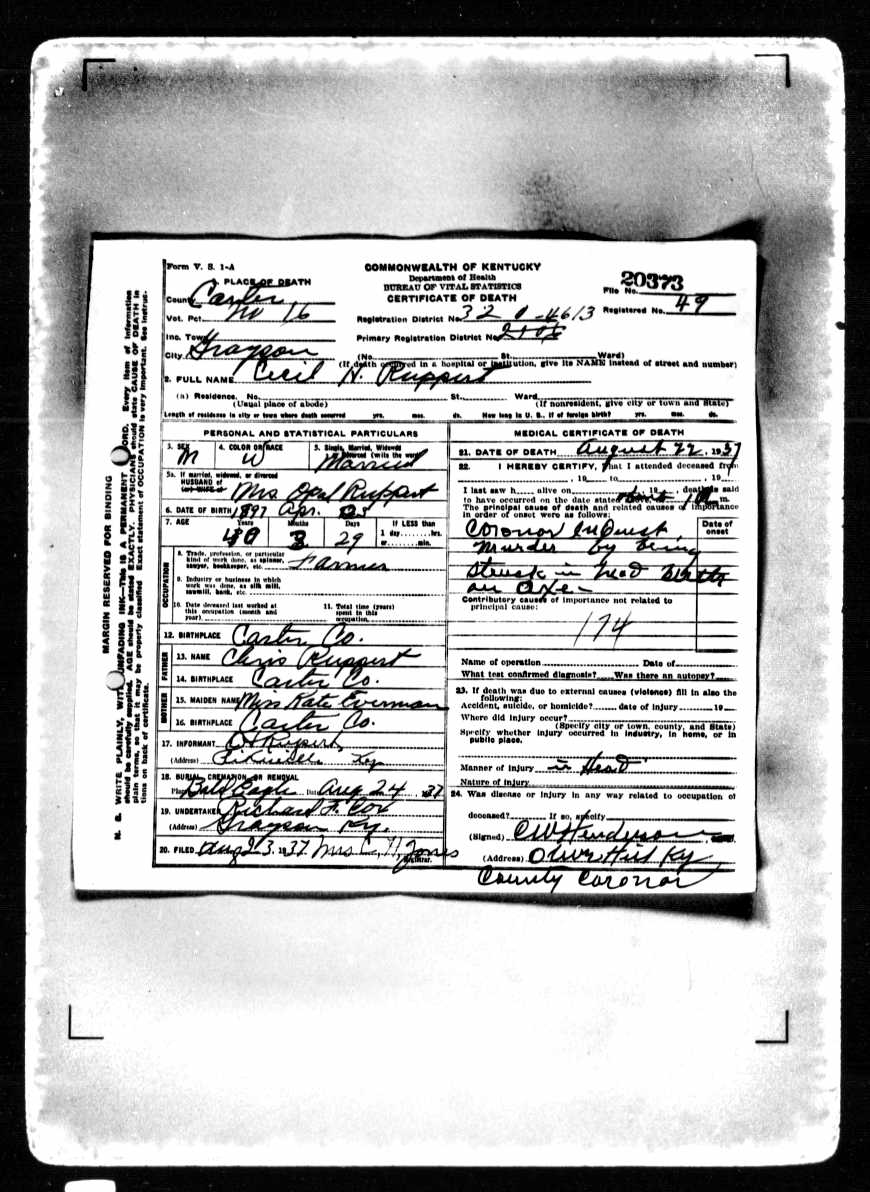 Form V. S. 1-A
COMMONWEALTH OF KENTUCKY
Department of Health
BUREAU OF VITAL STATISTICS
CERTIFICATE OF DEATH
File No. 20373
Registered No. 49
1. PLACE OF DEATH
County Carter
Vot. Pct. No 16
Registration District No. 32 0-4613
Inc. Town
Primary Registration District No.
City Grayson (No. St. Ward)
(If death occurred in a hospital or institution, give its NAME instead of street and number)
2. FULL NAME Cecil H. Ruppert
(a) Residence. No. St. Ward
(Usual place of abode) (If nonresident, give city or town and State)
Length of residence in city or town where death occurred yrs. mos. ds. How long in U. S., if of foreign birth? yrs. mos. ds.
PERSONAL AND STATISTICAL PARTICULARS
3. SEX M
4. COLOR OR RACE W
5. Single, Married, Widowed
or Divorced (write the word) Married
5a. If married, widowed, or divorced
HUSBAND of
(or) WIFE of Mrs Opal Ruppert
6. DATE OF BIRTH 1897 Apr.
7. AGE Years Months Days If LESS than
1 day hrs.
or min.
40 3 29
OCCUPATION
8. Trade, profession, or particular
kind of work done, as spinner,
sawyer, bookkeeper, etc. Farmer
9. Industry or business in which
work was done, as silk mill,
sawmill, bank, etc.
10. Date deceased last worked at
this occupation (month and
year)
11. Total time (years)
spent in this
occupation
12. BIRTHPLACE Carter Co.
FATHER
13. NAME Chris Ruppert
14. BIRTHPLACE Carter Co.
MOTHER
15. MAIDEN NAME Miss Kate Everman
16. BIRTHPLACE Carter Co.
17. INFORMANT Ruppert
(Address) Ky
18. BURIAL, CREMATION, OR REMOVAL
Place Bald Eagle Date Aug 24, 1937
19. UNDERTAKER Richard F. Cox
(Address) Grayson Ky.
20. FILED Aug 23, 1937 Mrs C. H. Jones
Registrar.
MEDICAL CERTIFICATE OF DEATH
21. DATE OF DEATH August 22, 1937
22. I HEREBY CERTIFY, That I attended deceased from
, 19 to , 19
I last saw h alive on , 19 , death is said
to have occurred on the date stated above, at m.
The principal cause of death and related causes of importance
in order of onset were as follows:
Date of
onset
Coronor Inquest,
Murder by being
struck in head with
an axe-
Contributory causes of importance not related to
principal cause:
174
Name of operation Date of
What test confirmed diagnosis? Was there an autopsy?
23. If death was due to external causes (violence) fill in also the
following:
Accident, suicide, or homicide? date of injury 19
Where did injury occur?
(Specify city or town, county, and State)
Specify whether injury occurred in industry, in home, or in
public place.
Manner of injury in Head
Nature of injury
24. Was disease or injury in any way related to occupation of
deceased? If so, specify
(Signed) CW Henderson
(Address) Olive Hill Ky
County Coronor
MARGIN RESERVED FOR BINDING
N. B. WRITE PLAINLY, WITH UNFADING INK—This IS A PERMANENT RECORD. Every item of information
should be carefully supplied. AGE should be stated EXACTLY. PHYSICIANS should state CAUSE OF DEATH in
plain terms, so that it may be properly classified. Exact statement of OCCUPATION is very important. See instruc-
tions on back of certificate.